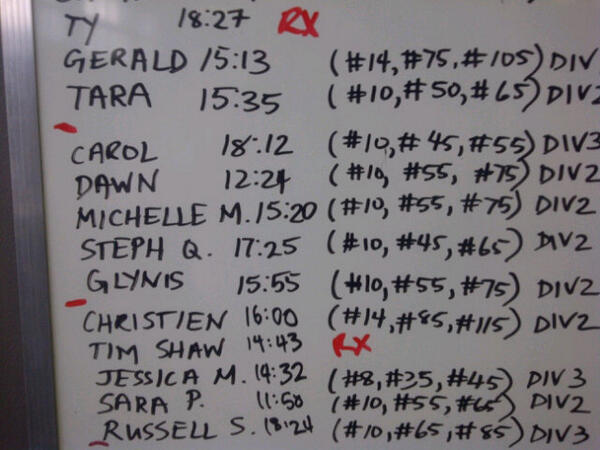 TY 18:27 RX
GERALD 15:13 (#14, #75, #105) DIV
TARA 15:35 (#10, #50, #65) DIV2
CAROL 18:12 (#10, #45, #55) DIV3
DAWN 12:24 (#10, #55, #75) DIV2
MICHELLE M. 15:20 (#10, #55, #75) DIV2
STEPH Q. 17:25 (#10, #45, #65) DIV2
GLYNIS 15:55 (#10, #55, #75) DIV2
CHRISTIEN 16:00 (#14, #85, #115) DIV2
TIM SHAW 14:43 RX
JESSICA M. 14:32 (#8, #35, #45) DIV3
SARA P. 11:50 (#10, #55, #65) DIV2
RUSSELL S. 18:24 (#10, #65, #85) DIV3